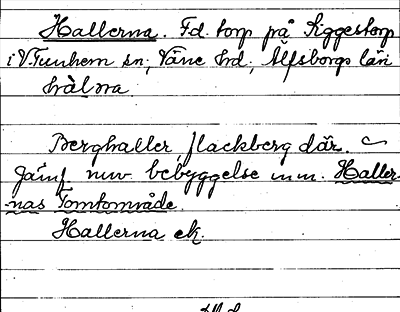 Hallerna. Fd. torp på Siggestorp
i V Tunhem sn, Väne hd, Älfsborgs län
Berghaller, flackberg där.
Jämf. nuv bebyggelse inm. Haller-
nas Tomtområde.
Hallerna ek.